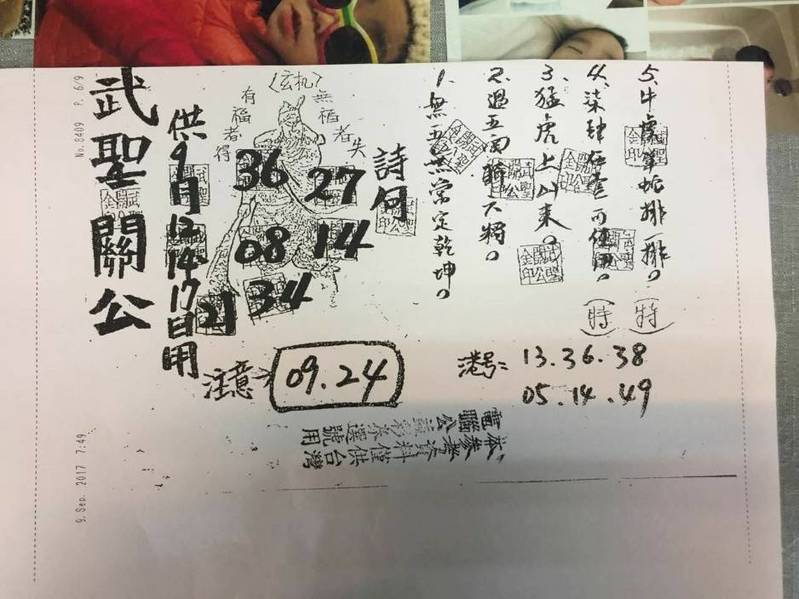 5、牛虎羊蛇排一排。(特)
4、柒肆在壹可使用。(特)
3、猛虎上山來。
2、過五面騎大將。
1、無무無常定乾坤。
詩句
(玄机)
無福者失
有福者得
27
36
14
08
34
21
供9月12 14 17日用
武聖關公
注意
09.24
港号:
13.36.38
05.14.49
本參考資料僅供台灣
電腦公益彩券選號用
No.8409 P. 6/9
9. Sep. 2017 7:49